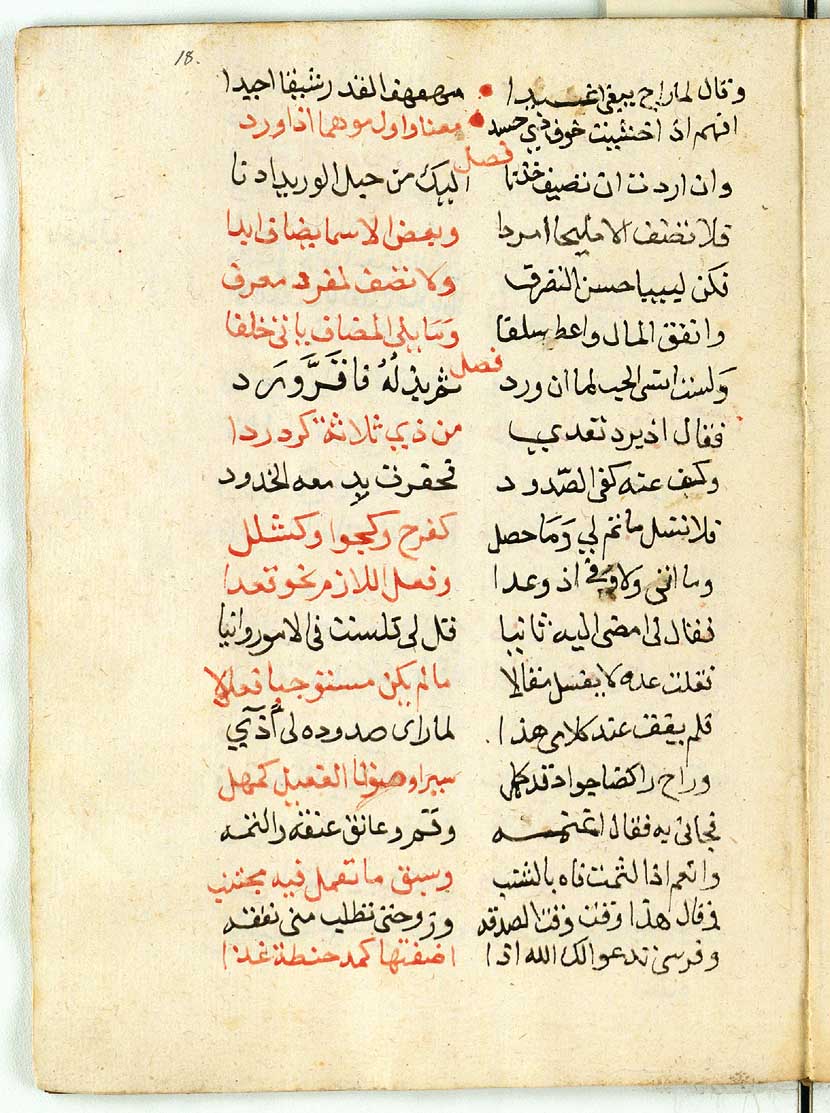 18.
وقال لما راح يبغي اغيدا مهفهف القد رشيقا اجيدا
افهم اذ اخشيت خوف ذي حسد معنا واول موهما اذا ورد
فصل
وان اردت ان تضيف اليك من حبل الوريد ادنا
فلا تضف الا مليحا امردا وبعض الاسما يضاف ابدا
فكن لبيبا حسن التصرف ولا تضف لمفرد معرف
وانفق المال واعط سلفا وما يلي المضاف ياتي خلفا
فصل
ولست انسى الحب لما ان ورد
فقال اذ يرد تعدي من ذي ثلاثة كرد ردا
وكيف عنه كفى الصدود معه الخدود
فلا تسل ما تم لي وما حصل كفرح وكجوا وكشلل
وما انثنى ولا وفى اذ وعدا وفعل اللازم نحو قعدا
فقال لي امضي اليه ثانيا قل لي فلست في الامور وانيا
فقلت عده لا يفسل مقالا ما لم يكن مستوجبا فعالا
فلم يقف عند كلامي هذا لما راى صدوده لي
وراح راكضا جواد قد كمل سيرا وصوتا الفعيل كصهل
فجاني به فقال اغتنمه وقم وعانق عنقه والتمه
وانعم اذا لثمت فاه بالشنب وسبق ما تعمل فيه مجتنب
وقال هذا وقت وقت الصدقه وزوجتي تطلب مني نفقه
وفرسي تدعو لك الله اذا اضفتها كمد حنطة غذا